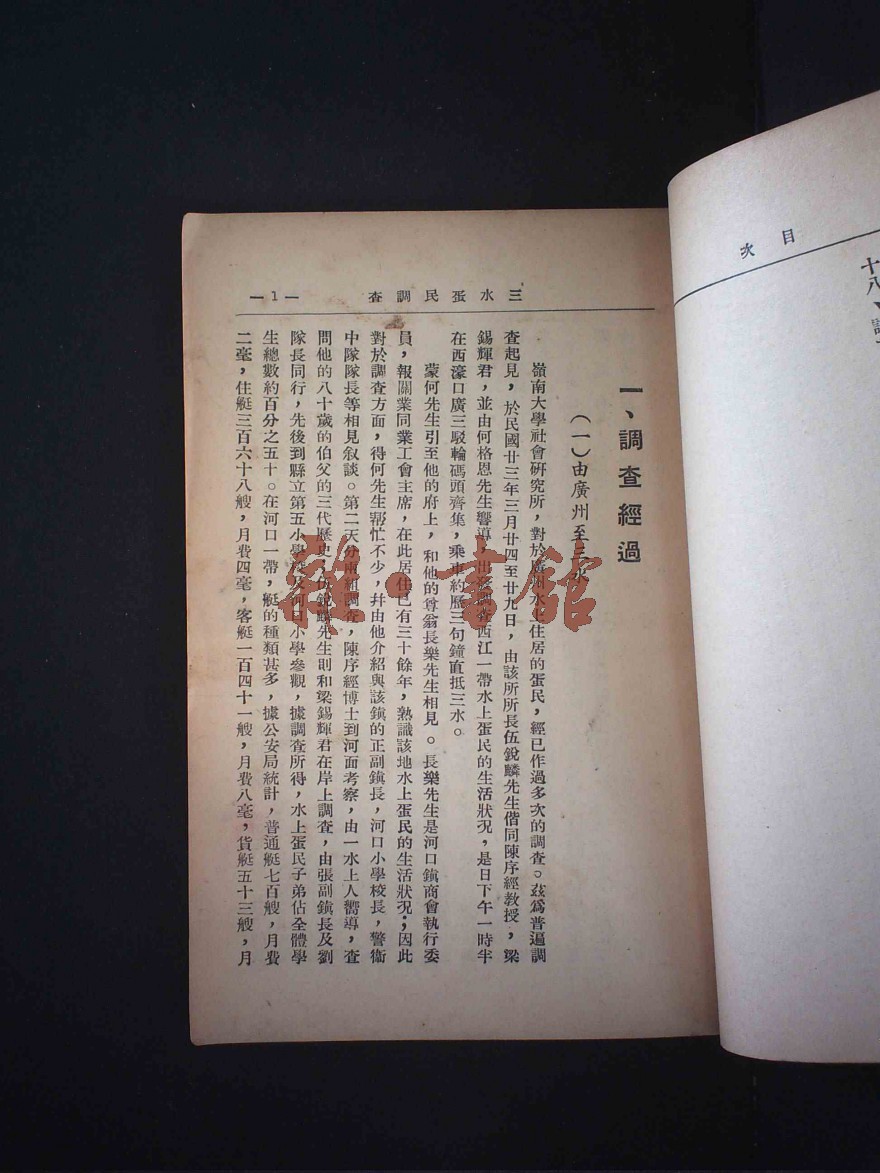 次目
十八、
三水蛋民調查
—1—
一、調查經過
（一）由廣州至三水
嶺南大學社會研究所，對於廣州水上住居的蛋民，經已作過多次的調查。茲爲普遍調
查起見，於民國廿三年三月廿四至廿九日，由該所所長伍銳麟先生偕同陳序經教授，梁
錫輝君，並由何格恩先生嚮導，出發調查西江一帶水上蛋民的生活狀况，是日下午一時半
在西濠口廣三駁輪碼頭齊集，乘車約歷三句鐘直抵三水。
蒙何先生引至他的府上，和他的尊翁長樂先生相見。長樂先生是河口鎮商會執行委
員，報關業同業工會主席，在此居住已有三十餘年，熟識該地水上蛋民的生活狀况；因此
對於調查方面，得何先生幫忙不少，幷由他介紹與該鎮的正副鎮長，河口小學校長，警衞
中隊隊長等相見叙談。第二天分兩組調查，陳序經博士到河面考察，由一水上人嚮導，查
問他的八十歲的伯父的三代歷史；伍銳麟先生則和梁錫輝君在岸上調查，由張副鎮長及劉
隊長同行，先後到縣立第五小學校及河口小學參觀，據調查所得，水上蛋民子弟佔全體學
生總數約百分之五十。在河口一帶，艇的種類甚多，據公安局統計，普通艇七百艘，月費
二毫，住艇三百六十八艘，月費四毫，客艇一百四十一艘，月費八毫，貨艇五十三艘，月
雜·書館